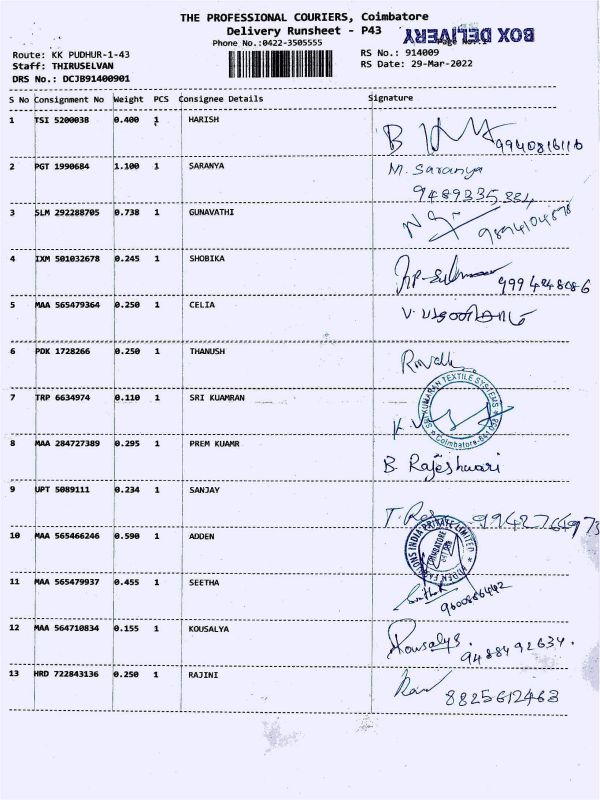 THE PROFESSIONAL COURIERS, Coimbatore
Delivery Runsheet - P43
BOX DELIVERY
Phone No.:0422-3505555
Route: KK PUDHUR-1-43
RS No.: 914009
Staff: THIRUSELVAN
RS Date: 29-Mar-2022
DRS No.: DCJB91400901
S No Consignment No Weight PCS Consignee Details Signature
1 TSI 5200038 0.400 1 HARISH
9940816116
2 PGT 1990684 1.100 1 SARANYA M. Saranya
9489335334
3 SLM 292288705 0.738 1 GUNAVATHI
9894104878
4 IXM 501032678 0.245 1 SHOBIKA
5 MAA 565479364 0.250 1 CELIA
6 PDK 1728266 0.250 1 THANUSH
7 TRP 6634974 0.110 1 SRI KUAMRAN
SRI KUMARAN TEXTILE SYSTEMS * Coimbatore
8 MAA 284727389 0.295 1 PREM KUAMR B. Rajeshwari
9 UPT 5089111 0.234 1 SANJAY
9942764973
10 MAA 565466246 0.590 1 ADDEN
ADDEN FASHIONS INDIA PRIVATE LIMITED
11 MAA 565479937 0.455 1 SEETHA
9600886442
12 MAA 564710834 0.155 1 KOUSALYA Kousalya.
9488492634.
13 HRD 722843136 0.250 1 RAJINI
8825612463